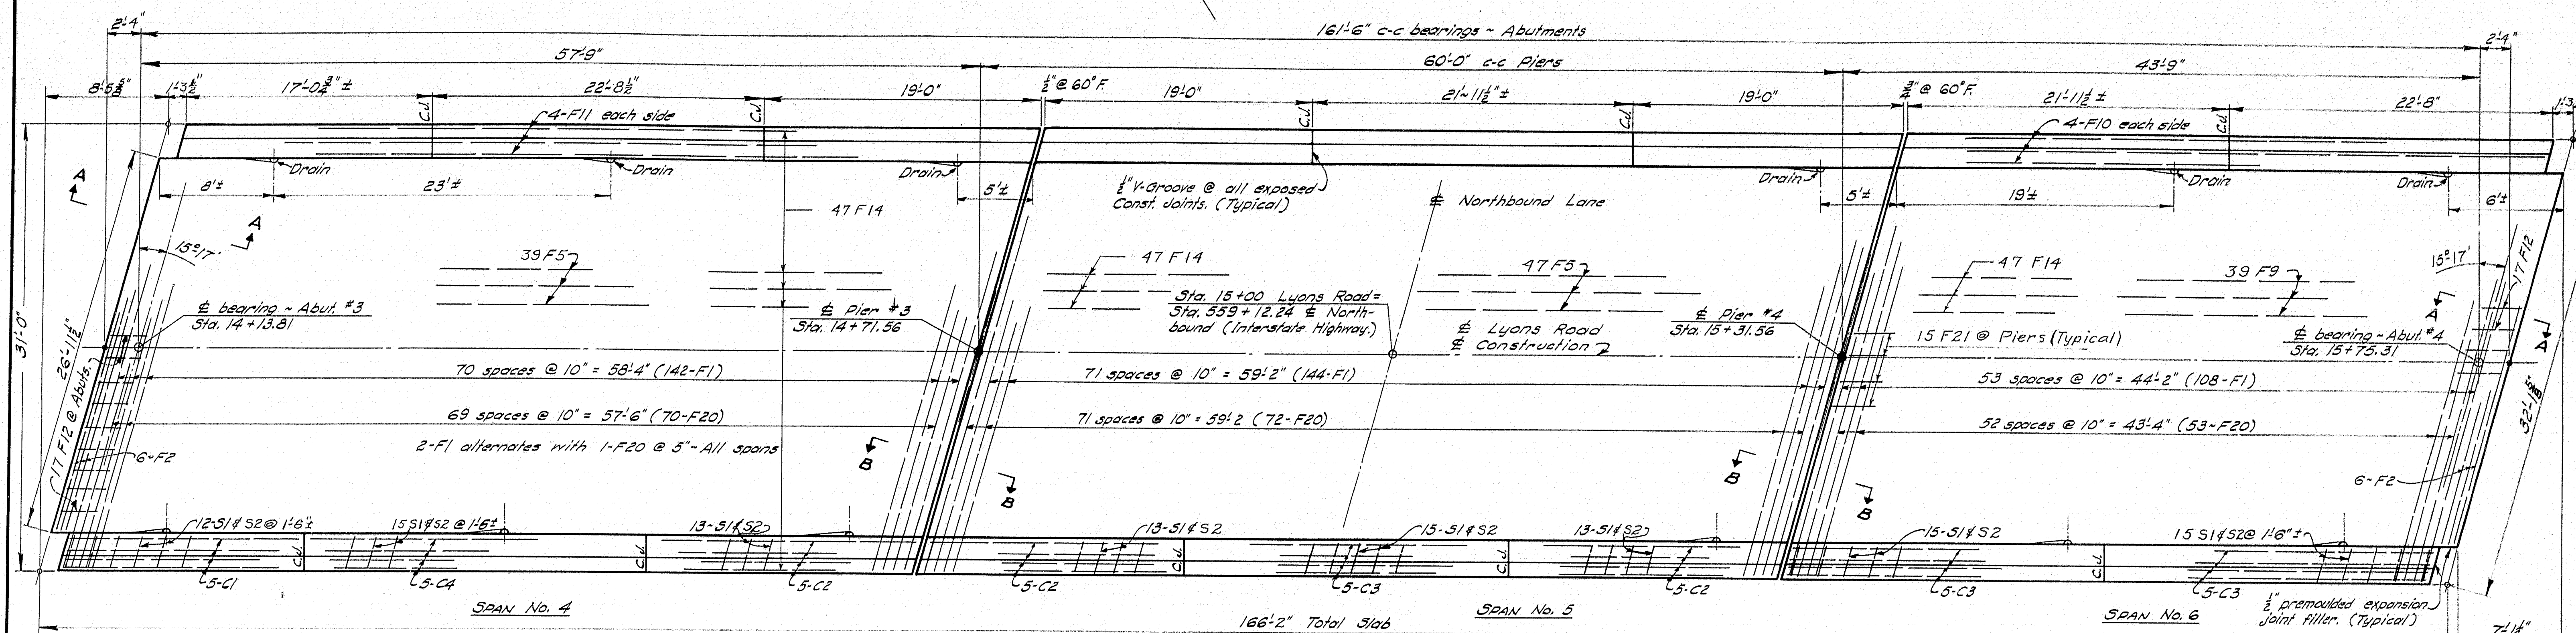 161'-6" c-c bearings ~ Abutments
2'-4"
2'-4"
57'-9"
60'-0" c-c Piers
43'-9"
8'-5 5/8"
1'-3 1/2"
17'-0 3/4" ±
22'-8 1/2"
19'-0"
1/2" @ 60° F.
19'-0"
21'~11 1/2" ±
19'-0"
3/4" @ 60° F.
21'-11 1/2 ±
22'-8"
C.J.
C.J.
C.J.
C.J.
C.J.
4-F11 each side
4-F10 each side
Drain
Drain
Drain
Drain
Drain
Drain
8'±
23'±
5'±
5'±
19'±
6'±
A
A
15°-17'
47 F14
39 F5
1/2" V-Groove @ all exposed
Const. Joints. (Typical)
℄ Northbound Lane
47 F14
47 F5
47 F14
39 F9
15°-17'
17 F12
A
A
℄ bearing ~ Abut. #3
Sta. 14+13.81
℄ Pier #3
Sta. 14+71.56
Sta. 15+00 Lyons Road =
Sta. 559+12.24 ℄ North-
bound (Interstate Highway.)
℄ Lyons Road
℄ Construction
℄ Pier #4
Sta. 15+31.56
15 F21 @ Piers (Typical)
℄ bearing ~ Abut. #4
Sta. 15+75.31
31'-0"
26'-11 1/2"
17 F12 @ Abuts.
70 spaces @ 10" = 58'-4" (142-F1)
71 spaces @ 10" = 59'-2" (144-F1)
53 spaces @ 10" = 44'-2" (108-F1)
69 spaces @ 10" = 57'-6" (70-F20)
71 spaces @ 10" = 59'-2 (72-F20)
52 spaces @ 10" = 43'-4" (53~F20)
2-F1 alternates with 1-F20 @ 5" ~ All spans
32'-1 5/8"
6~F2
6~F2
B
B
B
B
12-S1 & S2 @ 1'-6"±
15 S1 & S2 @ 1'-6±
13-S1 & S2
13-S1 & S2
15-S1 & S2
13-S1 & S2
15-S1 & S2
15 S1 & S2 @ 1'-6"±
C.J.
C.J.
C.J.
C.J.
C.J.
5-C1
5-C4
5-C2
5-C2
5-C3
5-C2
5-C3
5-C3
SPAN No. 4
SPAN No. 5
SPAN No. 6
1/2" premoulded expansion
joint filler. (Typical)
166'-2" Total Slab